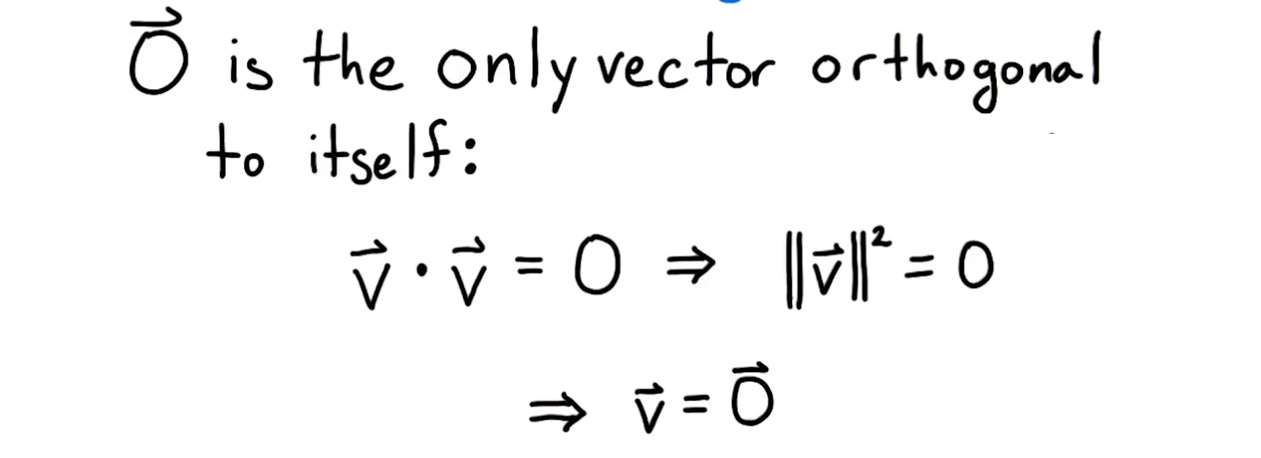 $\vec{0}$ is the only vector orthogonal
to itself:
$\vec{v} \cdot \vec{v} = 0 \Rightarrow \|\vec{v}\|^2 = 0$
$\Rightarrow \vec{v} = \vec{0}$